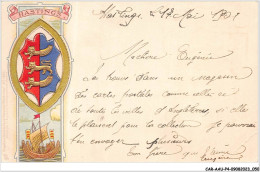 HASTINGS
Hastings, le 17 Mai 1901
Ma chère Eugénie
Je trouve dans un magasin
des cartes postales comme celle-ci
de toutes les villes d'Angleterre, si elle
te plaisent pour ta collection je pourrai
t'en envoyer plusieurs
Eugénie
CAR-AAU-P4-09082023_050